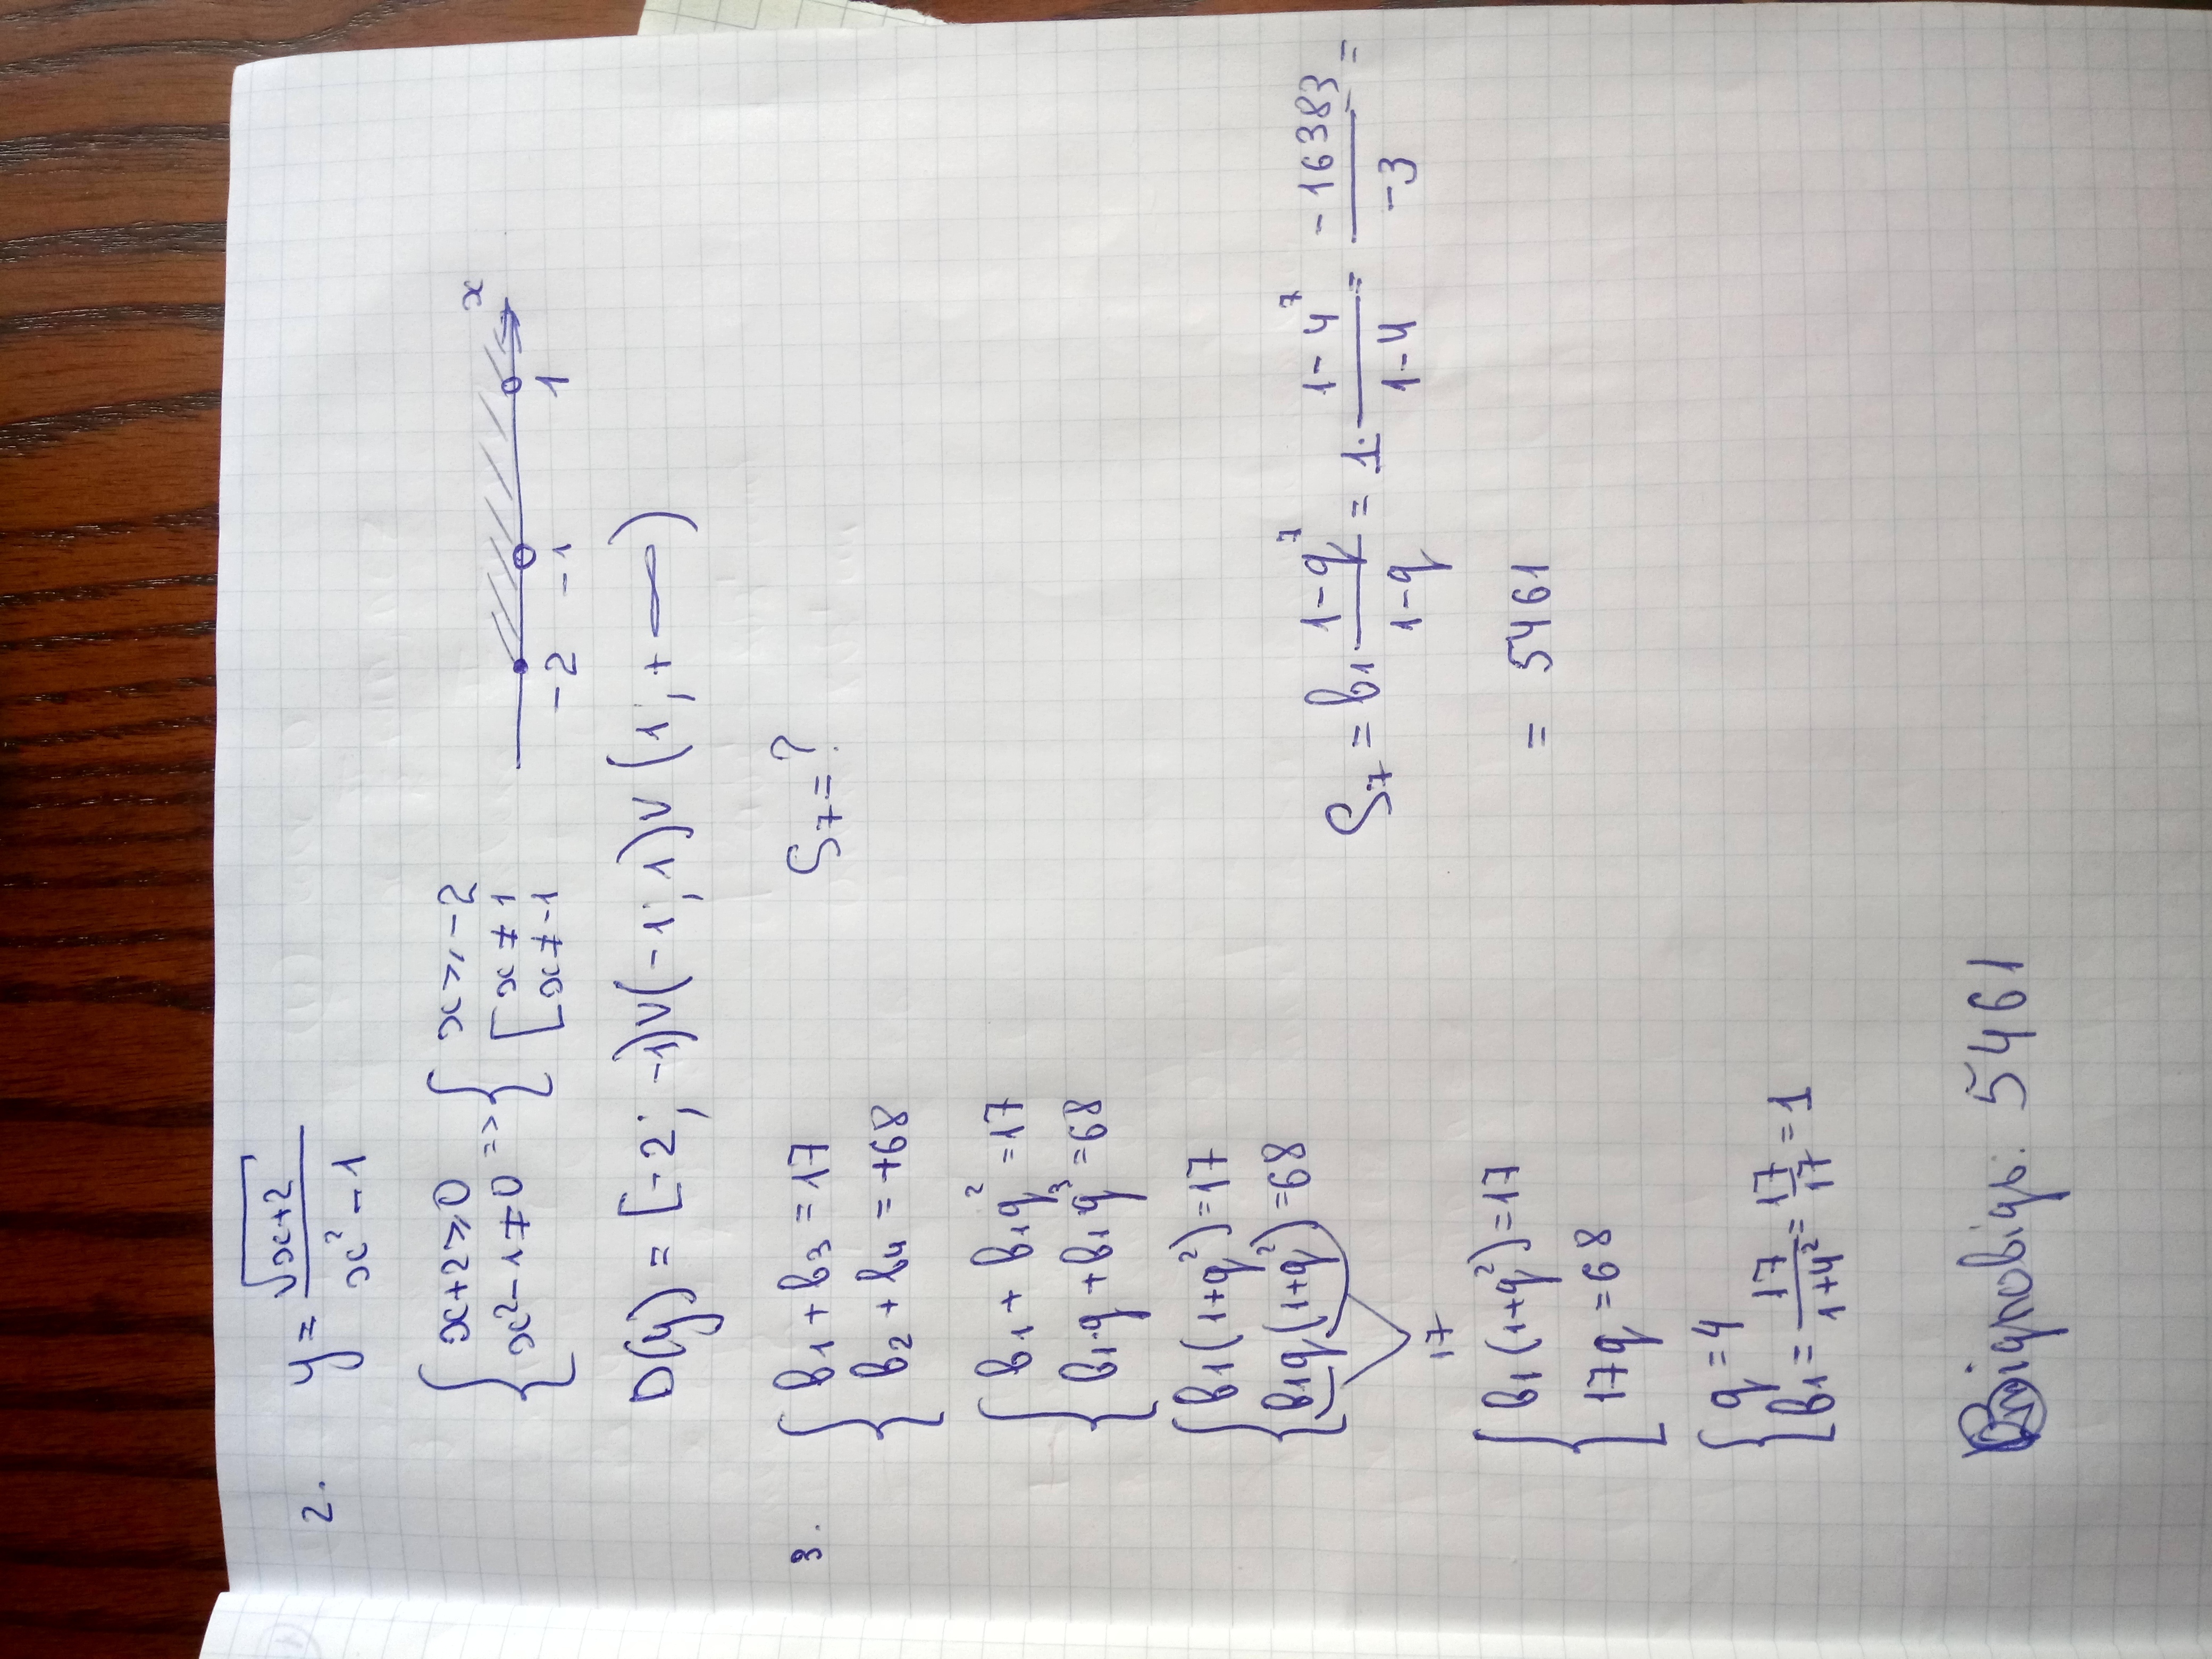 2. y = √(x+2) / (x² - 1)
{ x+2 ⩾ 0
x² - 1 ≠ 0 => { x ⩾ -2
[ x ≠ 1
x ≠ -1
x
-2 -1 1
D(y) = [-2; -1)∪(-1; 1)∪(1; + ∞)
3. { b₁ + b₃ = 17
b₂ + b₄ = +68
S₇ = ?
{ b₁ + b₁q² = 17
b₁·q + b₁q³ = 68
{ b₁(1+q²) = 17
b₁q(1+q²) = 68
17
{ b₁(1+q²) = 17
17q = 68
{ q = 4
b₁ = 17/(1+4²) = 17/17 = 1
S₇ = b₁ (1-q⁷)/(1-q) = 1· (1-4⁷)/(1-4) = -16383/-3 =
= 5461
Відповідь: 5461